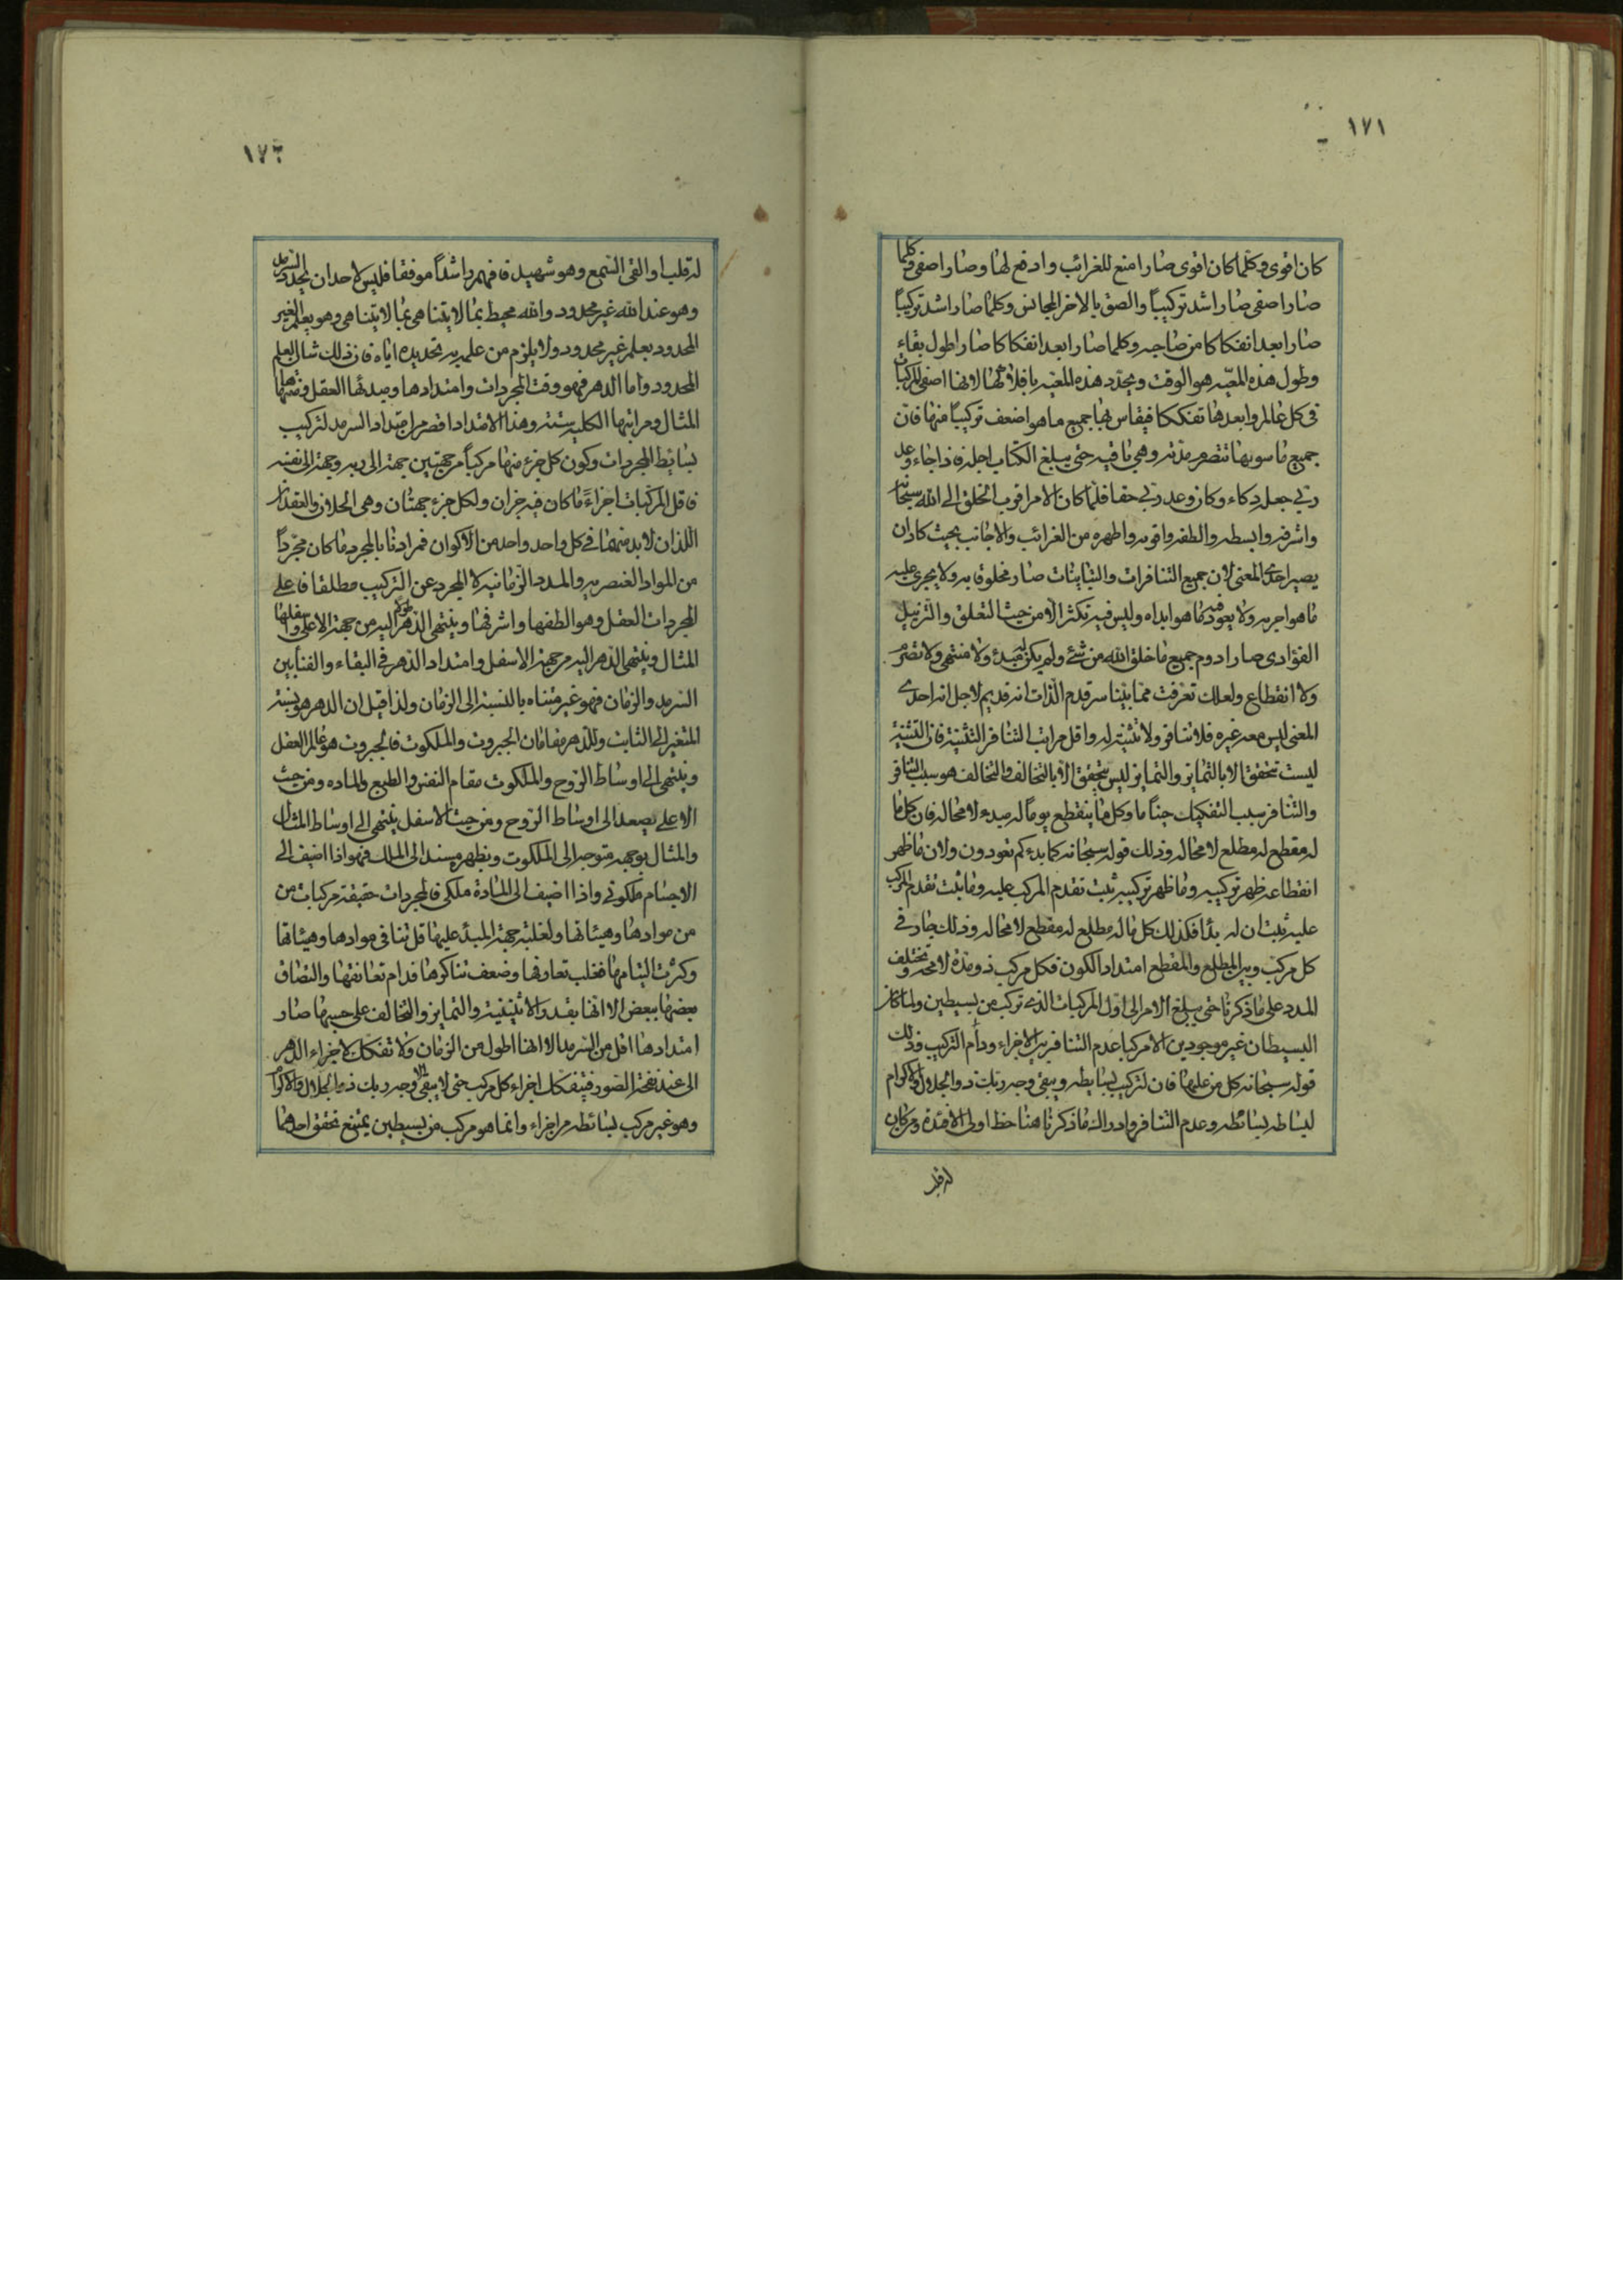 ١٧١
كان اقوى وكلما كان اقوى صار امنع للغرائب وادفع لها وصار اصفى وكلما
صار اصفى صار اشد تركيباً والصق بالاخر المجانس وكلما صار اشد تركيباً
صار ابعد انفكاكا من صاحبه وكلما صار ابعد انفكاكا صار اطول بقاء
وطول هذه المعيّة هو الوقت ويحدّد هذه المعيّة بافلاكها لانها اصفى المركبات
فى كل عالم وابعدها تفككا فيقاس بها جميع ما هو اضعف تركيباً منها فان
جميع ما سويها تتصرم مدته وهى باقية حتى يبلغ الكتاب اجله فاذا جاء وعد
ربي جعله دكاء وكان وعد ربي حقا فلما كان الامر اقرب الخلق الى الله سبحانه
واشرفه وابسطه والطفه واقويه واطهره من الغرائب والاجانب بحيث كاد ان
يصير احدى المعنى لان جميع التنافرات والتباينات صار مخلوقا به ولا يجرى عليه
ما هو اجريه ولا يعود فيه ما هو ابداه وليس فيه تكثر الا من حيث التعلق والتزييل
الفؤادى صار ادوم جميع ما خلق الله من شئ ولم يكن له مبدء ولا منتهى ولا تصرم
ولا انقطاع ولعلك تعرفت مما بينا سر قدم الذات انه قديم لاجل انه احدى
المعنى ليس معه غيره فلا تنافر ولا تثنية له واقل مراتب التنافر التثنية فان التثنية
ليست تتحقق الا بالتمايز والتمايز ليس يتحقق الا بالتخالف والتخالف هو سبب التنافر
والتنافر سبب التفكيك حيناً ما وكل ما ينقطع يوماً له مبدء لا محاله فان كل ما
له مقطع له مطلع لا محاله وذلك قوله سبحانه كما بدءكم تعودون ولان ما ظهر
انقطاعه ظهر تركيبه وما ظهر تركيبه ثبت تقدم المركب عليه وما ثبت تقدم المركب
عليه ثبت ان له بدأ فكذلك كل ما له مطلع له مقطع لا محاله وذلك جار فى
كل مركب وبين المطلع والمقطع امتداد الكون فكل مركب ذو مدة لا محة وتختلف
المدد على ما ذكرنا حتى يبلغ الامر الى اول المركبات الذى تركب من بسيطين ولما كان
البسيطان غير موجودين الا مركبا عدم التنافر بين الاجزاء ودام التركيب وذلك
قوله سبحانه كل من عليها فان لتركيب بسايطه ويبقى وجه ربك ذو الجلال والاكرام
لبساطة بسائطه وعدم التنافر وادراك ما ذكرنا هنا حظ اولى الافئدة ومن كان
له قلب
١٧٢
له قلب او القى السمع وهو شهيد فافهم راشداً موفقا فليس لاحد ان يحدد السرمد
وهو عند الله غير محدود والله محيط بما لا يتناهى بما لا يتناهى وهو يعلم الغير
المحدود بعلم غير محدود ولا يلزم من علمه به تحديده اياه فان ذلك شان العلم
المحدود واما الدهر فهو وقت المجردات وامتدادها ومبدئها العقل ومنتهاها
المثال ومراتبها الكلية ستة وهذا الامتداد اقصر من امتداد السرمد لتركيب
بسايط المجردات وكون كل جزء منها مركباً من جهتين جهة الى ربه وجهة الى نفسه
فاقل المركبات اجزاءً ما كان فيه جزان ولكل جزء جهتان وهى الحلان والعقدان
اللذان لا بد منهما فى كل واحد واحد من الاكوان فمرادنا بالمجرد ما كان مجرداً
من المواد العنصرية والمدد الزمانية لا المجرد عن التركيب مطلقا فاعلى
المجردات العقل وهو الطفها واشرفها وينتهى الدهر اليه من جهة الاعلى واسفلها
المثال وينتهى الدهر اليه من جهة الاسفل وامتداد الدهر فى البقاء والفنا بين
السرمد والزمان فهو غير متناه بالنسبة الى الزمان ولذا قيل ان الدهر هو نسبة
المتغير الى الثابت وللدهر مقامان الجبروت والملكوت فالجبروت هو عالم العقل
وينتهى الى اوساط الروح والملكوت مقام النفس والطبع والماده ومن حيث
الاعلى يصعد الى اوساط الروح ومن حيث الاسفل ينتهى الى اوساط المثال
والمثال بوجهه متوجه الى الملكوت وبظهره مسند الى الملك فهو اذا اضيف الى
الاجسام ملكوتى واذا اضيف الى المادة ملكى فالمجردات حقيقة مركبات من
من موادها وهيئاتها ولغلبة جهة المبدء عليها قل تنافى موادها وهيئاتها
وكثرت التيامها فغلب تعارفها وضعف تناكرها فدام تعانقها والتصاق
بعضها ببعض الا انها بقدر الاثنينية والتمايز والتخالف على حسبها صار
امتدادها اقل من السرمد الا انها اطول من الزمان ولا تفكك لاجزاء الدهر
الى عند نفخة الصور فيتفكك اجزاء كل مركب حتى لا يبقى الا وجه ربك ذو الجلال والاكرام
وهو غير مركب بسائطه من اجزاء وانما هو مركب من بسيطين يمتنع تحقق احدهما